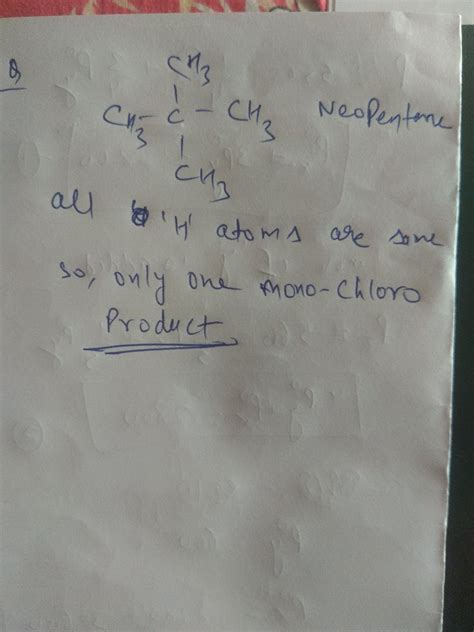 Q
CH3
CH3 - C - CH3 Neopentane
CH3
all 'H' atoms are same
so, only one mono-chloro
Product